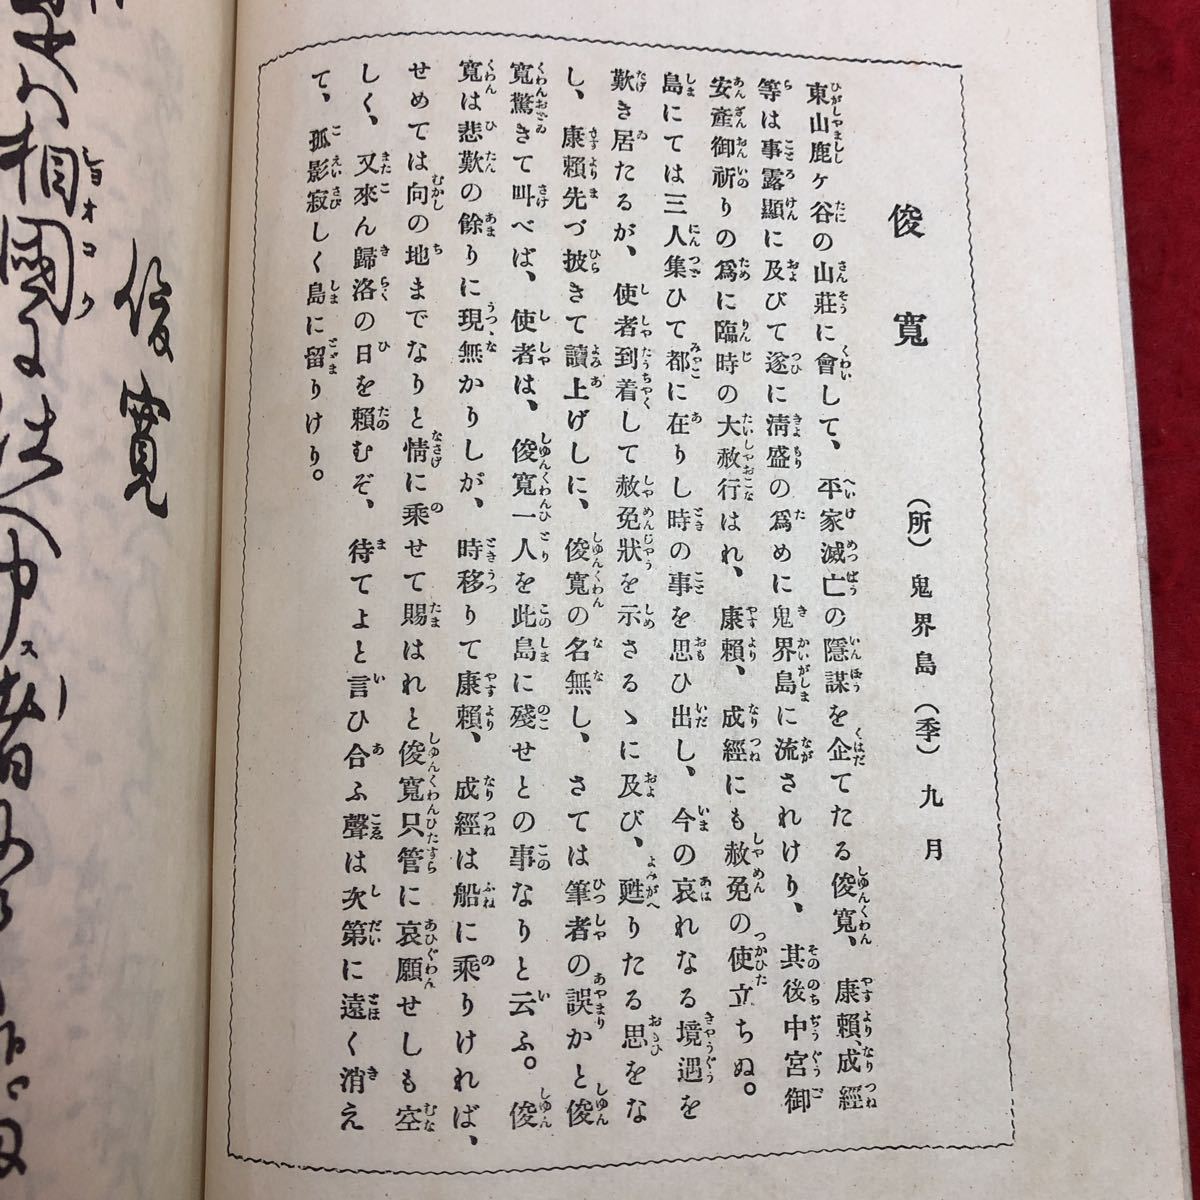 俊寬
（所）鬼界島（季）九月
東山鹿ヶ谷の山莊に會して、平家滅亡の隱謀を企てたる俊寬、康賴、成經
等は事露顯に及びて遂に淸盛の爲めに鬼界島に流されけり、其後中宮御
安產御祈りの爲に臨時の大赦行はれ、康賴、成經にも赦免の使立ちぬ。
島にては三人集ひて都に在りし時の事を思ひ出し、今の哀れなる境遇を
歎き居たるが、使者到着して赦免狀を示さるゝに及び、甦りたる思をな
し、康賴先づ披きて讀上げしに、俊寬の名無し、さては筆者の誤かと俊
寬驚きて叫べば、使者は、俊寬一人を此島に殘せとの事なりと云ふ。俊
寬は悲歎の餘りに現無かりしが、時移りて康賴、成經は船に乘りければ、
せめては向の地までなりと情に乘せて賜はれと俊寬只管に哀願せしも空
しく、又來ん歸洛の日を賴むぞ、待てよと言ひ合ふ聲は次第に遠く消え
て、孤影寂しく島に留りけり。
俊寬
相國